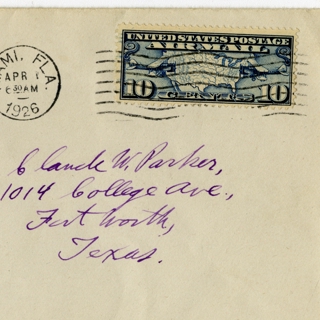 AMI, FLA.
APR 1
6 30 AM
1926
UNITED STATES POSTAGE
AIR MAIL
10 CENTS 10
Claude W. Parker,
1014 College Ave.,
Fort Worth,
Texas.